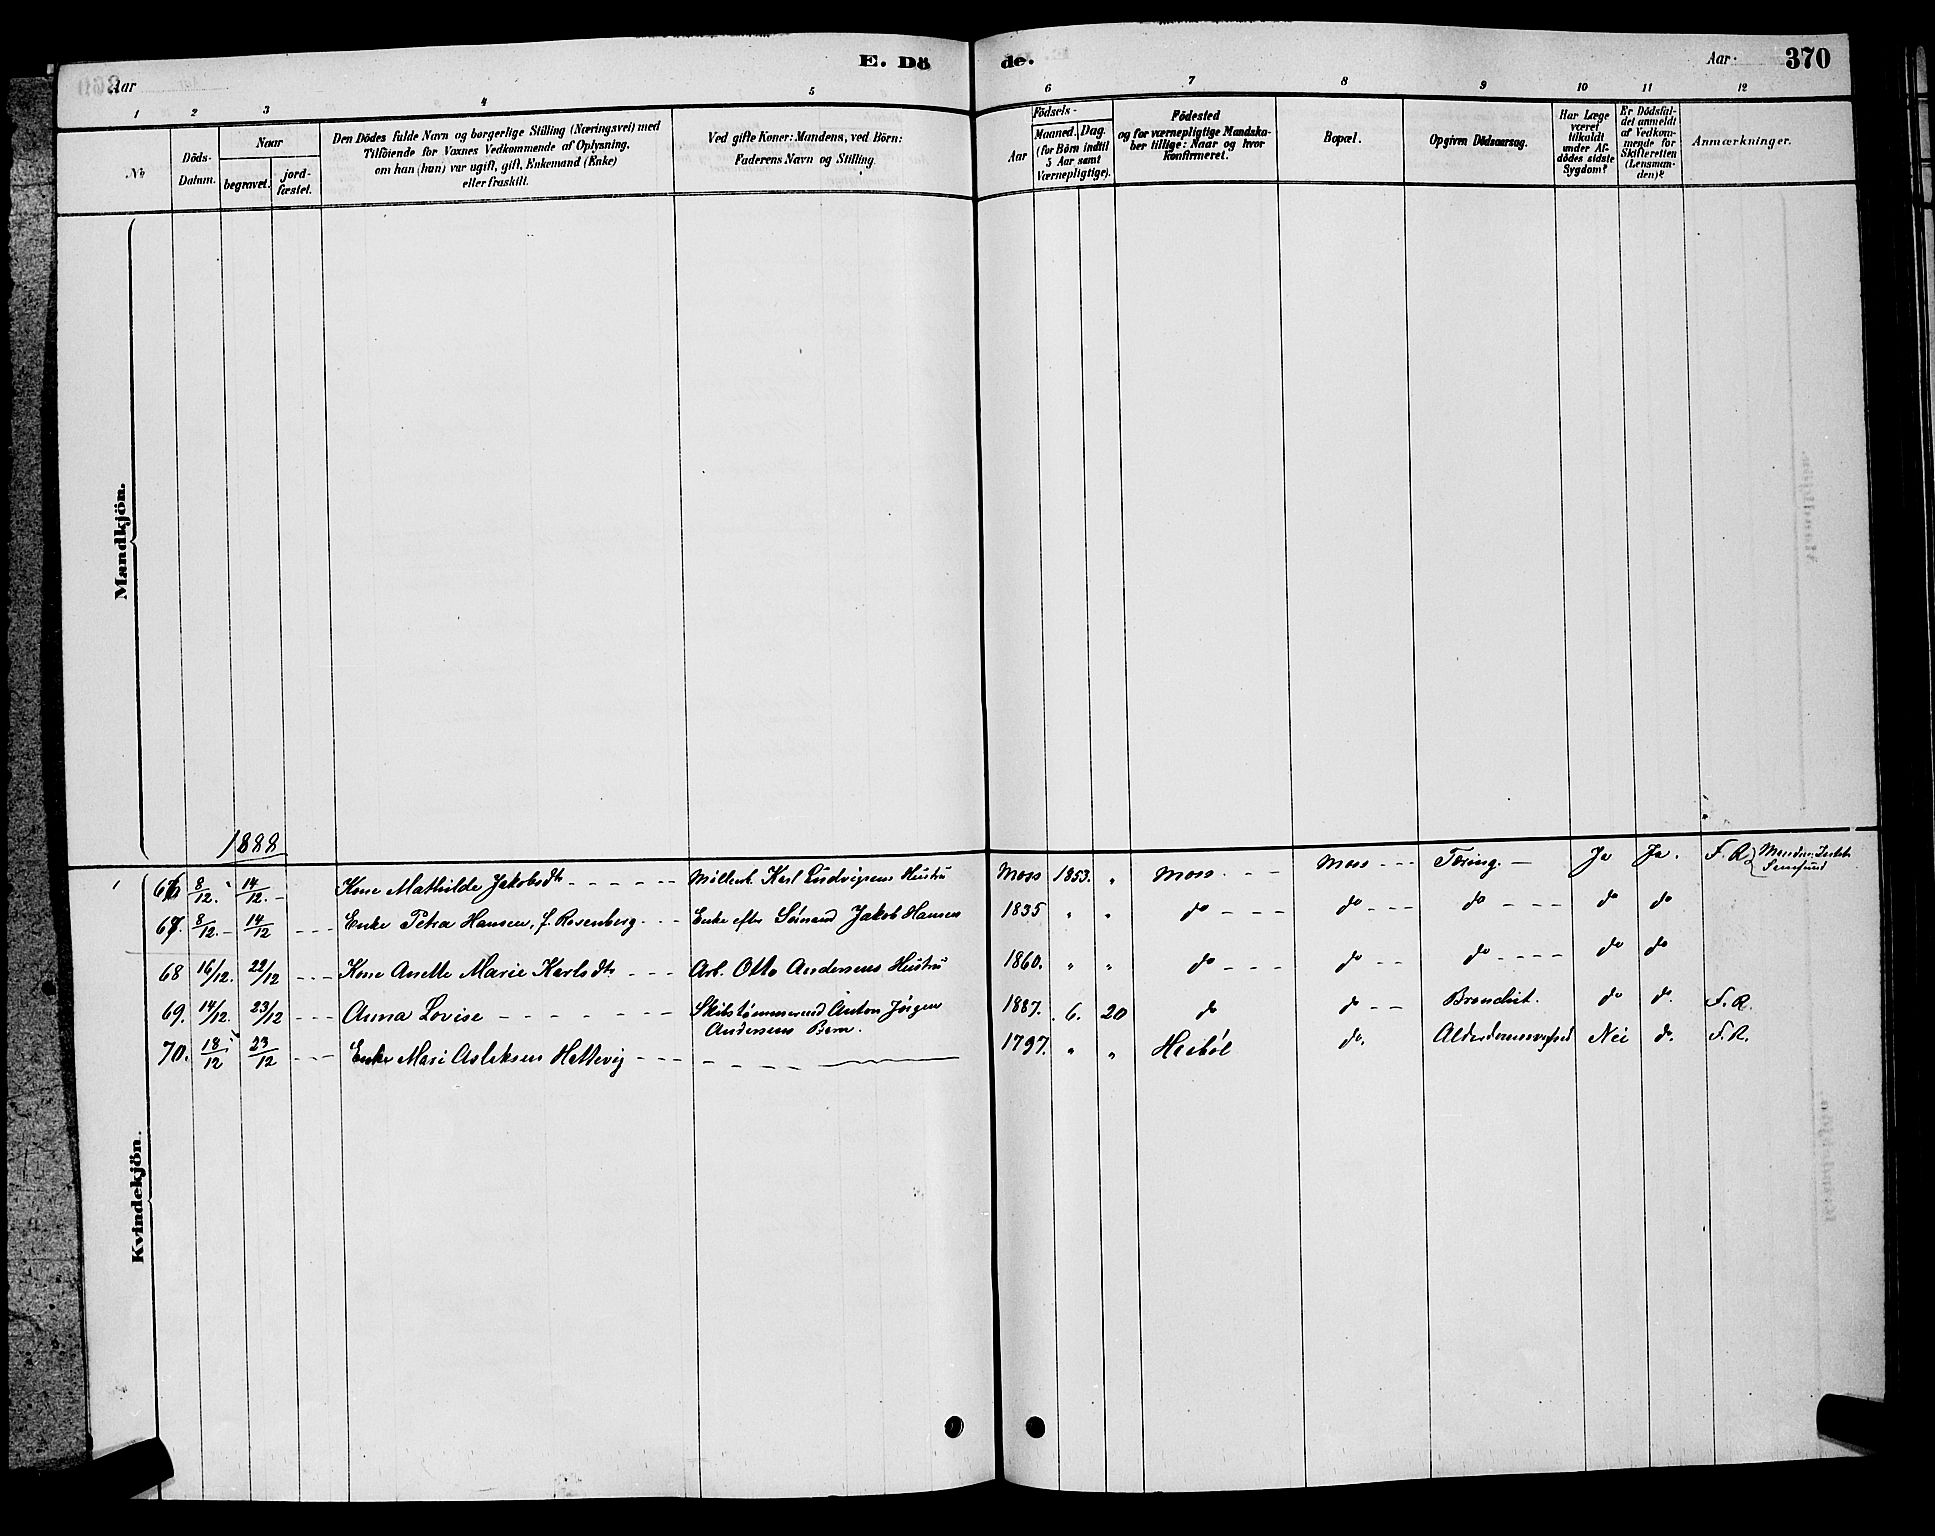 E. Dö de.
Aar
Aar.
370
1 2 3 4 5 6 7 8 9 10 11 12
No
Döds-Datum.
Naar
begravet.
jord-fæstet.
Den Dödes fulde Navn og borgerlige Stilling (Næringsvei) med
Tilföiende for Voxnes Vedkommende af Oplysning,
om han (hun) var ugift, gift, Enkemand (Enke)
eller fraskilt.
Ved gifte Koner: Mandens, ved Börn:
Faderens Navn og Stilling.
Födsels-
Aar
Maaned. Dag.
(for Börn indtil
5 Aar samt
Værnepligtige).
Födested
og for værnepligtige Mandska-
ber tillige: Naar og hvor
konfirmeret.
Bopæl.
Opgiven Dödsaarsag.
Har Læge
været
tilkaldt
under Af-
dödes sidste
Sygdom?
Er Dödsfal-
det anmeldt
af Vedkom-
mende for
Skifteretten
(Lensman-
den)?
Anmærkninger.
Mandkjön.
1888
66 8/12. 14/12. - Kone Mathilde Jakobsdt. - - - - - Möllerk. Karl Ludvigsens Hustru Moss 1853. " Moss. - - Moss - - - Tæring. - Ja Ja. F. R.
67. 8/12. - 14/12 - - - Enke Petra Hansen, f. Rosenberg - - - Enke efter Sömand Jakob Hansen 1835 " " do - - - do - - - do - - - do do
68 16/12. 22/12 - - - Kone Anette Marie Karlsdt. - - - Arb. Otto Andersens Hustru 1860. " " do - - - do - - do - - - - do do
69. 14/12. 23/12 - - - Anna Lovise - - - - - - - Skibstømmermd Anton Jörgen
Andersens Barn. 1887. 6. 20 do do - - Bronchit. do do. F. R.
70. 18/12 23/12 - - - Enke Mari Aslaksen Hettevig - - - - - - - 1797. " " Heeböl do. Alderdomssvaghed Nei do. F. R.
Kvindekjön.